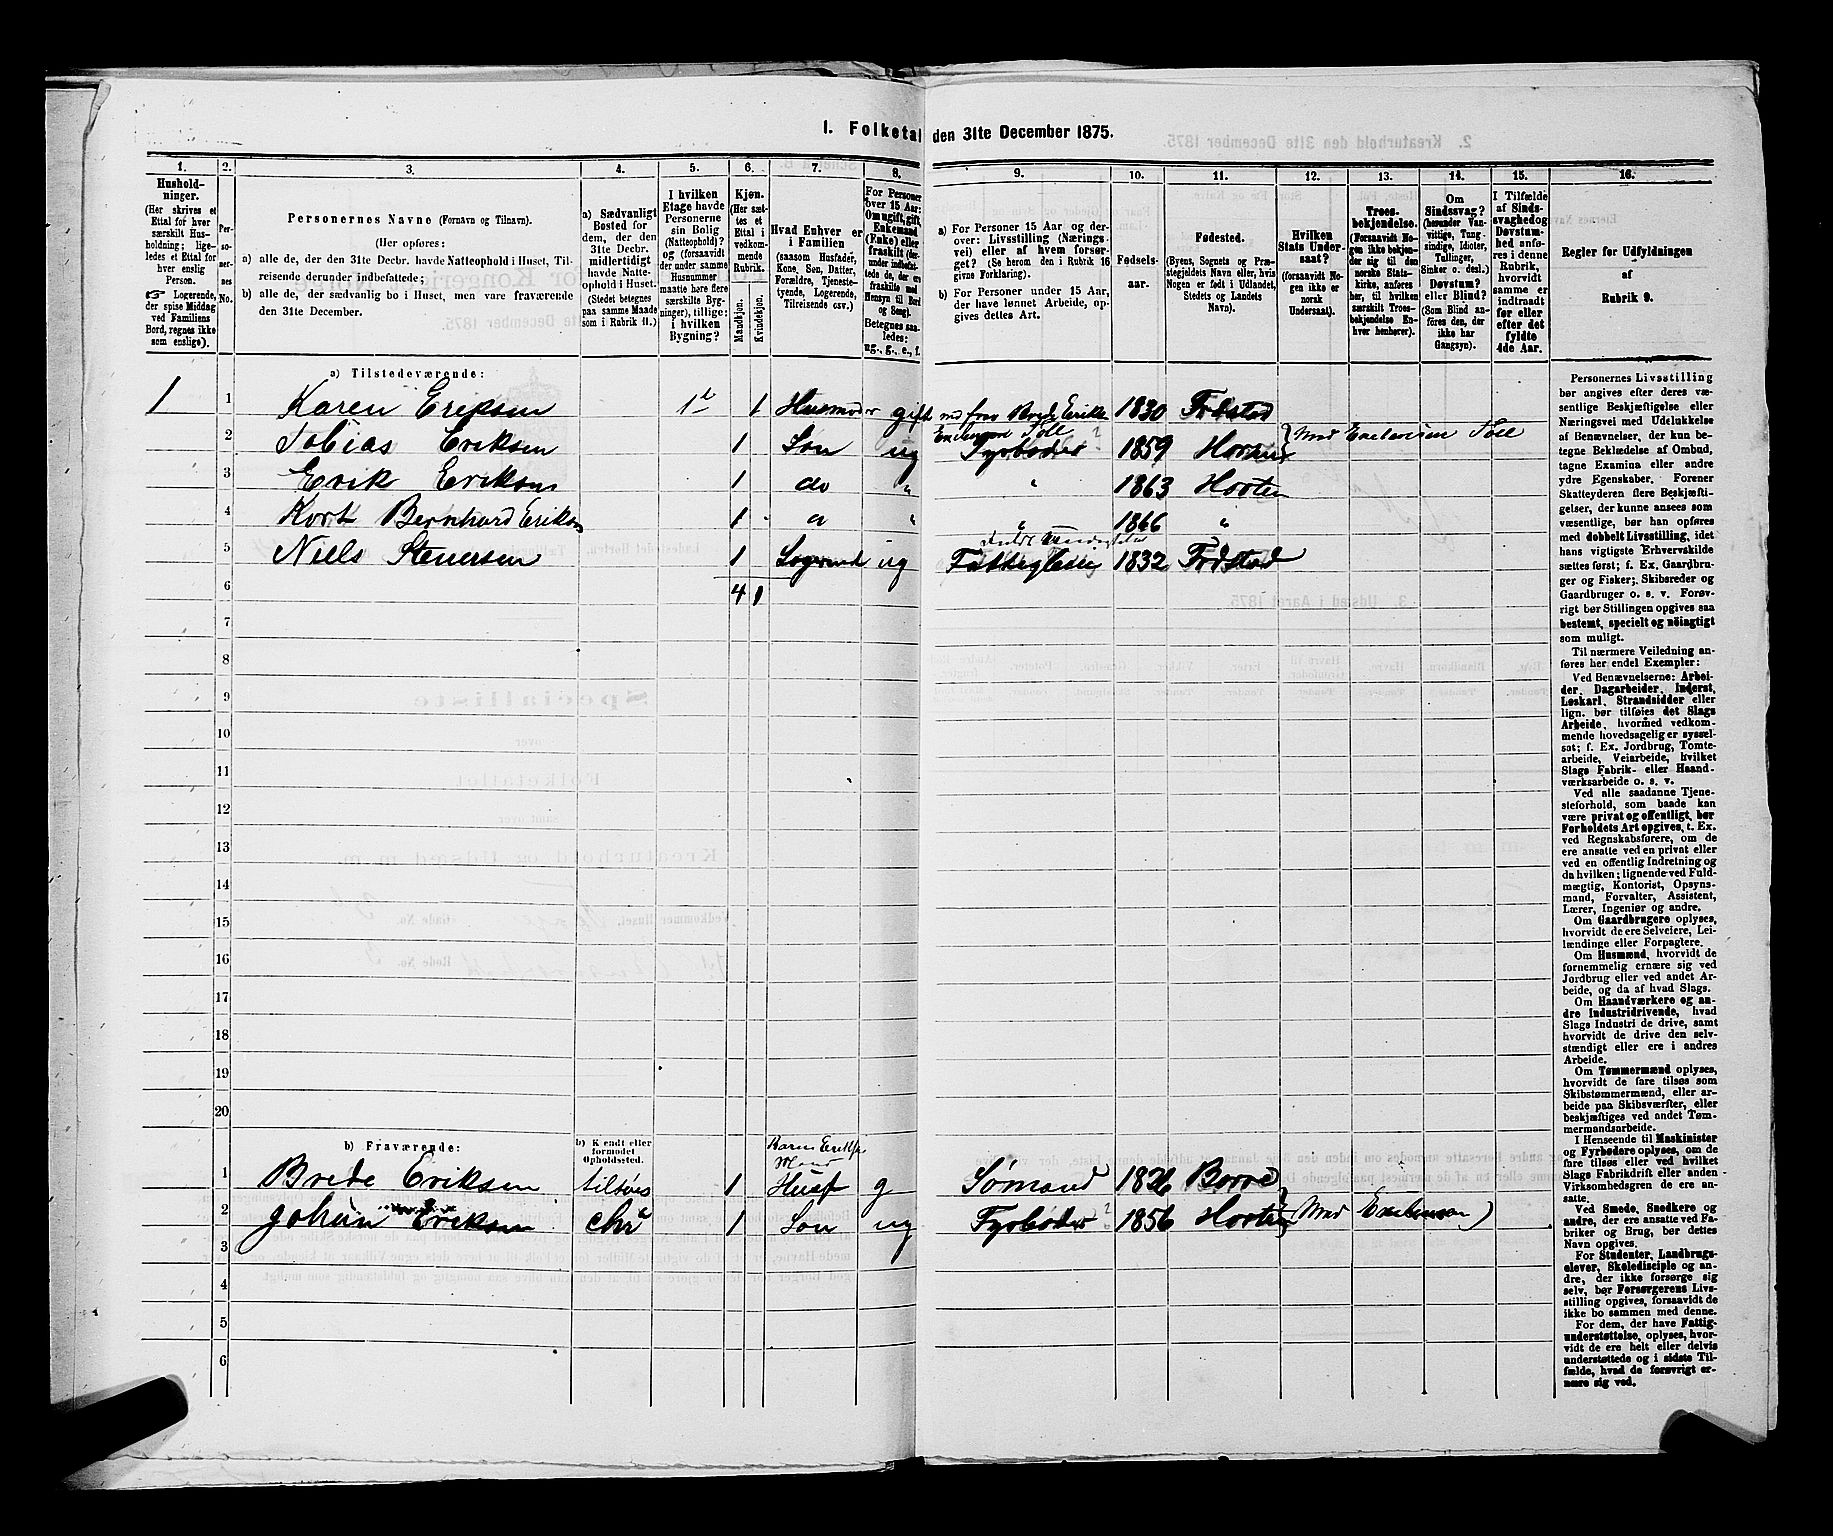 1. Folketal den 31te December 1875.
1. 2. 3. 4. 5. 6. 7. 8. 9. 10. 11. 12. 13. 14. 15. 16.
Hushold-
ninger.
(Her skrives et
Ettal for hver
særskilt Hus-
holdning; lige-
ledes et Ettal for
hver enslig
Person.
☞ Logerende,
der spise Middag
ved Familiens
Bord, regnes ikke
som enslige).
Per-
so-
ner-
nes
No.
Personernes Navne (Fornavn og Tilnavn).
(Her opføres:
a) alle de, der den 31te Decbr. havde Natteophold i Huset, Til-
reisende derunder indbefattede;
b) alle de, der sædvanlig bo i Huset, men vare fraværende
den 31te December.
a) Sædvanligt
Bosted for
dem, der den
31te Decbr.
midlertidigt
havde Natte-
ophold i Huset.
(Stedet betegnes
paa samme Maade
som i Rubrik 11.)
I hvilken
Etage havde
Personerne
sin Bolig
(Natteophold)?
og (forsaavidt
der under samme
Husnummer
maatte høre flere
særskilte Byg-
ninger), tillige:
i hvilken
Bygning?
Kjøn.
(Her sæt-
tes et
Ettal i
vedkom-
mende
Rubrik.
Mandkjøn.
Kvindekjøn.
Hvad Enhver er
i Familien
(saasom Husfader,
Kone, Søn, Datter,
Forældre, Tjeneste-
tyende, Logerende,
Tilreisende osv.)
For Personer
over 15 Aar:
Om ugift, gift,
Enkemand
(Enke) eller
fraskilt (der-
under indbefat-
tede de, der ere
fraskilte med
Hensyn til Bord
og Seng).
Betegnes saa-
ledes:
ug., g., e., f.
a) For Personer 15 Aar og der-
over: Livsstilling (Nærings-
vei) eller af hvem forsør-
get? (Se herom den i Rubrik 16
givne Forklaring).
b) For Personer under 15 Aar,
der have lønnet Arbeide, op-
gives dettes Art.
Fødsels-
aar.
Fødested.
(Byens, Sognets og Præ-
stegjeldets Navn eller, hvis
Nogen er født i Udlandet,
Stedets og Landets
Navn).
Hvilken
Stats Under-
saat?
(forsaavidt No-
gen ikke er
norsk
Undersaat).
Troes-
bekjendelse.
(Forsaavidt No-
gen ikke bekjen-
der sig til den
norske Stats-
kirke, anføres
her, til hvilken
særskilt Troes-
bekjendelse En-
hver henhører).
Om
Sindssvag?
(herunder Van-
vittige, Tung-
sindige, Idioter,
Tullinger,
Sinker o. desl.)
Døvstum?
eller Blind?
(Som Blind an-
føres den, der
ikke har
Gangsyn).
I Tilfælde
af Sinds-
svaghed og
Døvstum-
hed anfø-
res i denne
Rubrik,
hvorvidt
samme er
indtraadt
før eller
efter det
fyldte
4de Aar.
Regler for Udfyldningen
af
Rubrik 9.
a) Tilstedeværende:
1 1 Karen Eriksen 1 1 Husmoder gift 1830
2 Tobias Eriksen 1 Søn ug Fyrbøder ? 1859 Horten
3 Erik Eriksen 1 do " " 1863 Horten
4 Kort Bernhard Eriksen 1 " " " 1866 "
5 Niels Stenersen 1 ug 1832
6 4 1
7
8
9
10
11
12
13
14
15
16
17
18
19
20
b) Fraværende:
b) Kjendt eller
formodet
Opholdssted.
Karen Eriksens
Mand
1 Brede Eriksen tilsøes 1 Husf g Sømand 1826 Borre
2 Johan Eriksen 1 Søn ug Fyrbøder ? 1856 Horten
3
4
5
6
Personernes Livsstilling
bør angives efter deres væ-
sentlige Beskjæftigelse eller
Næringsvei med Udelukkelse
af Benævnelser, der kun be-
tegne Beklædelse af Ombud,
tagne Examina eller andre
ydre Egenskaber. Forener
Skatteyderen flere Beskjæfti-
gelser, der kunne ansees som
væsentlige, bør han opføres
med dobbelt Livsstilling, idet
hans vigtigste Erhvervskilde
sættes først; f. Ex. Gaardbru-
ger og Fisker; Skibsreder og
Gaardbruger o. s. v. Forøv-
rigt bør Stillingen opgives saa
bestemt, specielt og nøiagtigt
som muligt.
Til nærmere Veiledning an-
føres her endel Exempler:
Ved Benævnelserne: Arbei-
der, Dagarbeider, Inderst,
Løskarl, Strandsidder eller
lign. bør tilføies det Slags
Arbeide, hvormed vedkom-
mende hovedsagelig er syssel-
sat; f. Ex. Jordbrug, Tomte-
arbeide, Veiarbeide, hvilket
Slags Fabrik- eller Haand-
værksarbeide o. s. v.
Ved alle saadanne Tjene-
steforhold, som baade kan
være privat og offentligt, bør
Forholdets Art opgives, t. Ex.
ved Regnskabsførere, om de
ere ansatte ved en privat eller
ved en offentlig Indretning og
da hvilken; lignende ved Fuld-
mægtig, Kontorist, Opsyns-
mand, Forvalter, Assistent,
Lærer, Ingeniør og andre.
Om Gaardbrugere oplyses,
hvorvidt de ere Selveiere, Lei-
lændinge eller Forpagtere.
Om Husmænd, hvorvidt de
fornemmelig ernære sig ved
Jordbrug eller ved andet Ar-
beide, og da af hvad Slags.
Om Haandværkere og an-
dre Industridrivende, hvad
Slags Industri de drive, samt
hvorvidt de drive den selv-
stændigt eller ere i andres
Arbeide.
Om Tømmermænd oplyses,
hvorvidt de fare tilsøs som
Skibstømmermænd, eller ar-
beide paa Skibsværfter, eller
beskjæftiges ved andet Tøm-
mermandsarbeide.
I Henseende til Maskinister
og Fyrbødere oplyses, om de
fare tilsøs eller ved hvilket
Slags Fabrikdrift eller anden
Virksomhedsgren de ere an-
satte.
Ved Smede, Snedkere og
andre, der ere ansatte ved Fa-
briker og Brug, bør dettes
Navn opgives.
For Studenter, Landbrugs-
elever, Skoledisciple og an-
dre, der ikke forsørge sig
selv, bør Forsørgerens Livs-
stilling opgives, forsaavidt de
ikke bo sammen med denne.
For dem, der have Fattig-
understøttelse, oplyses, hvor-
vidt de ere helt eller delvis
understøttede og i sidste Til-
fælde, hvad de forøvrigt er-
nære sig ved.